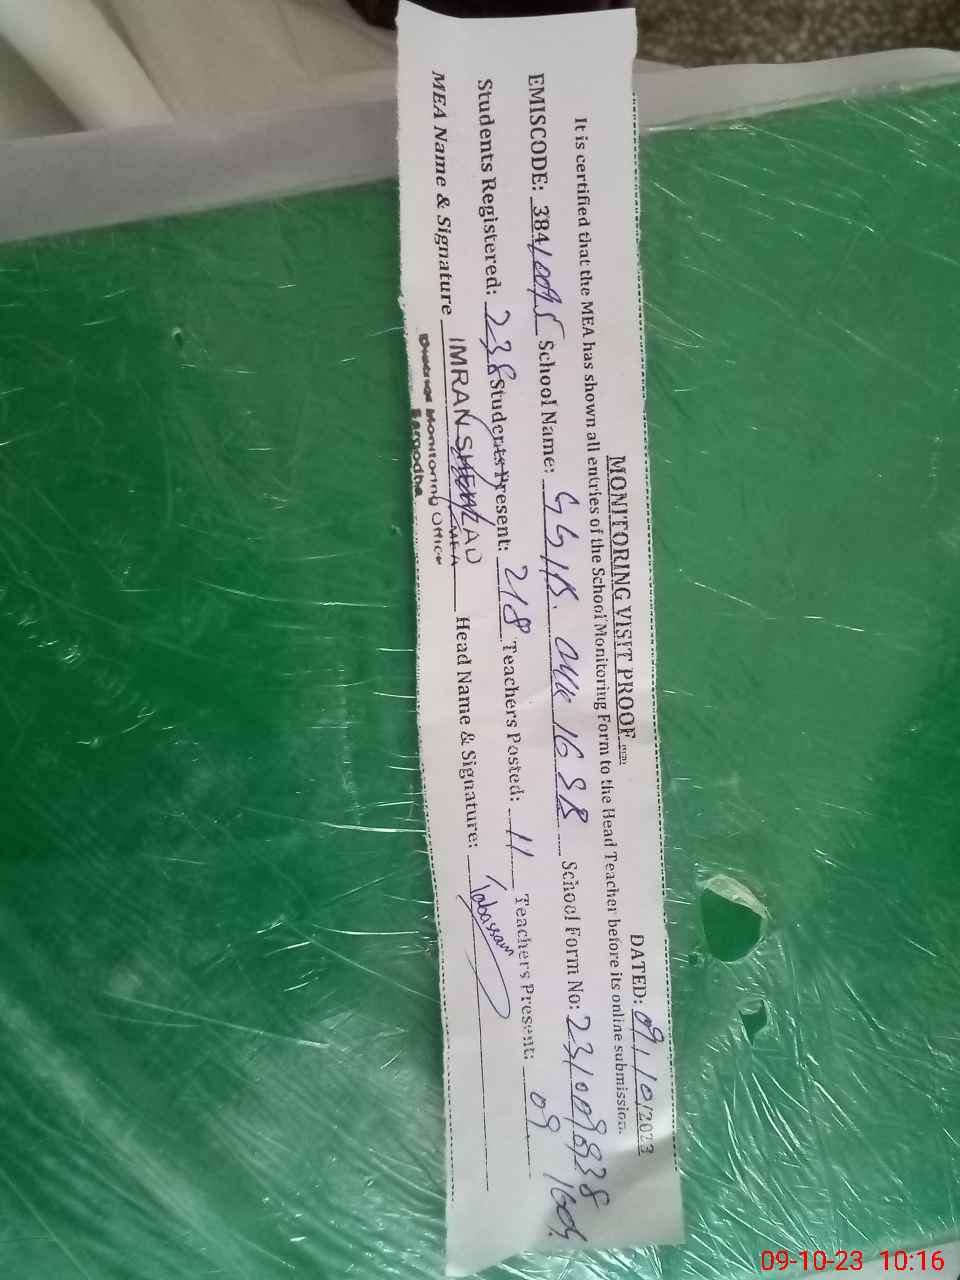 MONITORING VISIT PROOF
DATED: 09/10/2023
It is certified that the MEA has shown all entries of the School Monitoring Form to the Head Teacher before its online submission.
EMISCODE: 384 School Name: 16 SB School Form No:
Students Registered: 238 Students Present: 218 Teachers Posted: 11 Teachers Present: 09
MEA Name & Signature IMRAN SHEHZAD MEA Head Name & Signature: Tabassam
District Monitoring Officer
Sargodha
09-10-23 10:16